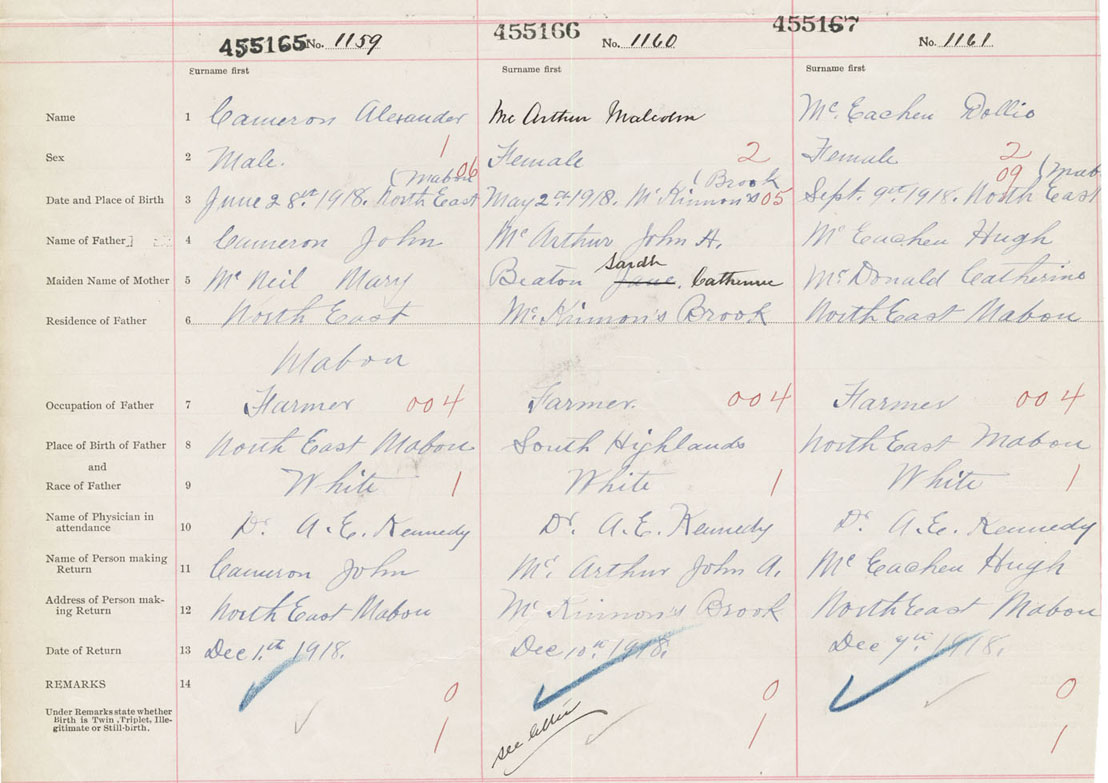 455165 No. 1159 455166 No. 1160 455167 No. 1161
Surname first Surname first Surname first
Name 1 Cameron Alexander Mc Arthur Malcolm Mc Eachen Dollie
Sex 2 Male. 1 Female 2 Female 2
(Mabou 06 (Brook 09 (Mab
Date and Place of Birth 3 June 28th 1918. North East May 2nd 1918. McKinnon's 05 Sept. 9th 1918. North East
Name of Father 4 Cameron John Mc Arthur John H. Mc Eachen Hugh
Sarah
Maiden Name of Mother 5 Mc Neil Mary Beaton Jane. Catherine McDonald Catherine
Residence of Father 6 North East McKinnon's Brook North East Mabou
Mabou
Occupation of Father 7 Farmer 004 Farmer. 004 Farmer 004
Place of Birth of Father 8 North East Mabou South Highlands North East Mabou
and
Race of Father 9 White 1 White 1 White 1
Name of Physician in
attendance 10 Dr. A.E. Kennedy Dr. A.E. Kennedy Dr. A.E. Kennedy
Name of Person making
Return 11 Cameron John Mc. Arthur John A. Mc Eachen Hugh
Address of Person mak-
ing Return 12 North East Mabou Mc Kinnon's Brook North East Mabou
Date of Return 13 Dec 1th 1918. Dec 10th 1918. Dec 7th 1918.
REMARKS 14 0 0 0
Under Remarks state whether
Birth is Twin, Triplet, Ille-
gitimate or Still-birth.
1 see letter 1 1